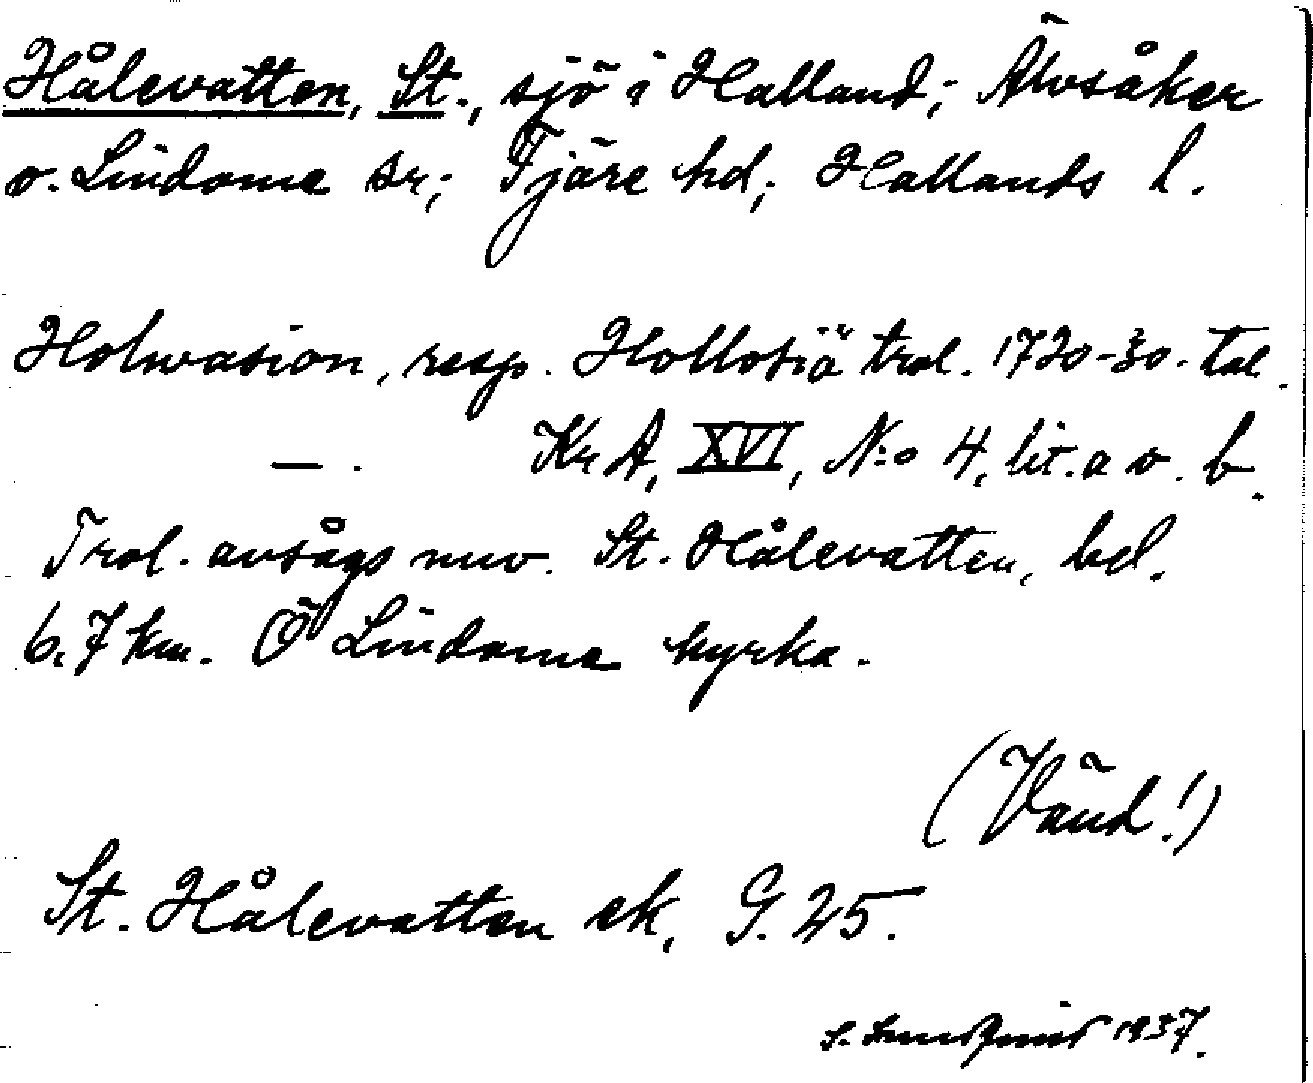 Hålevatten, St., sjö i Halland; Älvsåker
o. Lindome sr; Fjäre hd; Hallands l.
Holwasion, resp. Hollosiä trol. 1720-30-tal.
— . KrA, XVI, N:o 4, lit. a o. b.
Trol. avsågs nuv. St. Hålevatten, bel.
6,7 km. Ö Lindome kyrka.
(Vänd!)
St. Hålevatten ek, G. 25.
S. 1937.